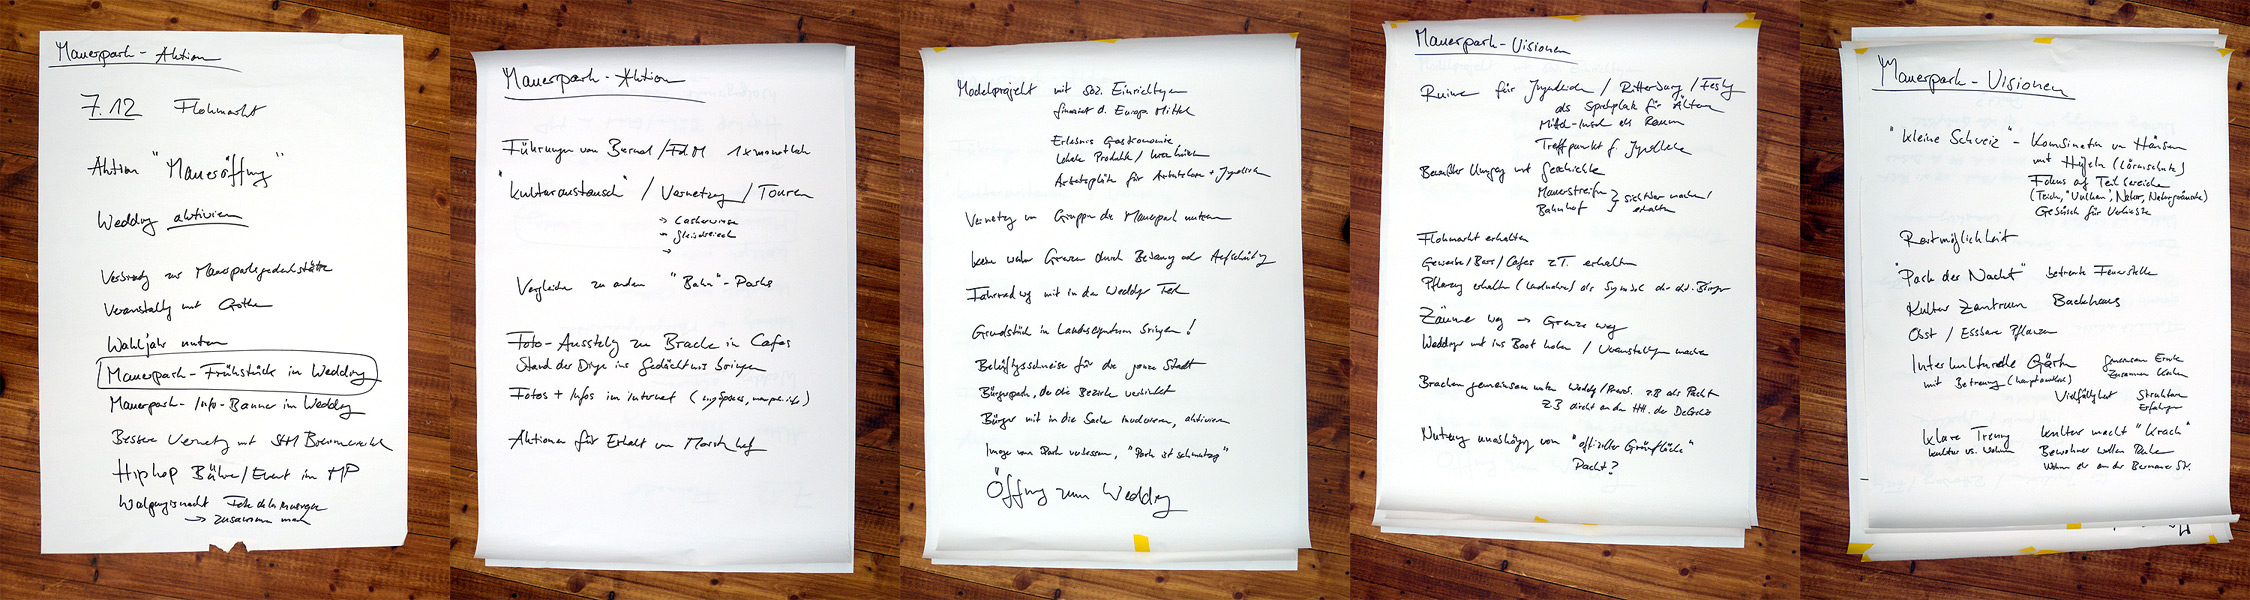 Mauerpark - Aktion
7.12 Flohmarkt
Aktion "Maueröffnung"
Wedding aktivieren
Verbindung zur Mauerparkgedenkstätte
Veranstaltung mit
Wahljahr nutzen
Mauerpark-Frühstück im Wedding
Mauerpark-Info-Banner im Wedding
Bessere Vernetzung mit
Hiphop Bühne/Event im MP
Walpurgisnacht
→ zusammen
Mauerpark - Aktion
Führungen von Bernd / FdM 1x monatlich
"Kulturaustausch" / Vernetzung / Touren
→
→ Gleisdreieck
→
Vergleiche zu anderen "Bahn"-Parks
Foto-Ausstellung zu Brache in Cafes
Stand der Dinge ins Gedächtnis bringen
Fotos + Infos im Internet (myspaces,
Aktionen für Erhalt von
Modellprojekt mit soz. Einrichtungen
finanziert d. Europa Mittel
Erlebnis Gastronomie
Lokale Produkte /
Arbeitsplätze für Arbeitslose + Jugendlichen
Vernetzung von Gruppen die Mauerpark nutzen
keine weiteren Grenzen durch Bebauung oder
Fahrradweg mit in den Weddinger Teil
Grundstück in Landeseigentum bringen!
Belüftungsschneise für die ganze Stadt
Bürgerpark, der die Bezirke verbindet
Bürger mit in die Sache involvieren, aktivieren
Image vom Park verbessern, "Park ist schmutzig"
Öffnung zum Wedding
Mauerpark - Visionen
Ruine für Jugendliche / Ritterburg /
als Spielplatz für Ältere
Mittel-Insel als Raum
Treffpunkt f. Jugendliche
Bewußter Umgang mit Geschichte
Mauerstreifen
Bahnhof } sichtbar machen / erhalten
Flohmarkt erhalten
Gewerbe / Bars / Cafes z.T. erhalten
Pflanzung erhalten als Symbol der
Zäune weg → Grenze weg
Weddinger mit ins Boot holen / Veranstaltungen machen
Brachen gemeinsam nutzen z.B als Pacht
z.B direkt an der
Nutzung unabhängig von "offizieller Grünfläche"
Pacht?
Mauerpark - Visionen
"Kleine Schweiz" - Kombination von Häusern
mit Hügeln (Lärmschutz)
Fokus auf Teilbereiche
(Teich, "Vulkan", Natur, Naturgeräusche)
Gebüsch für Verliebte
Reitmöglichkeit
"Park der Nacht" betreute Feuerstelle
Kultur Zentrum Backhaus
Obst / Essbare Pflanzen
Interkulturelle Gärten gemeinsam Ernten
mit Betreuung (hauptamtlich) zusammen Kochen
Vielfältigkeit
Klare Trennung Kultur macht "Krach"
Kultur vs. Wohnen Bewohner wollen
Wohnen an der Bernauer Str.